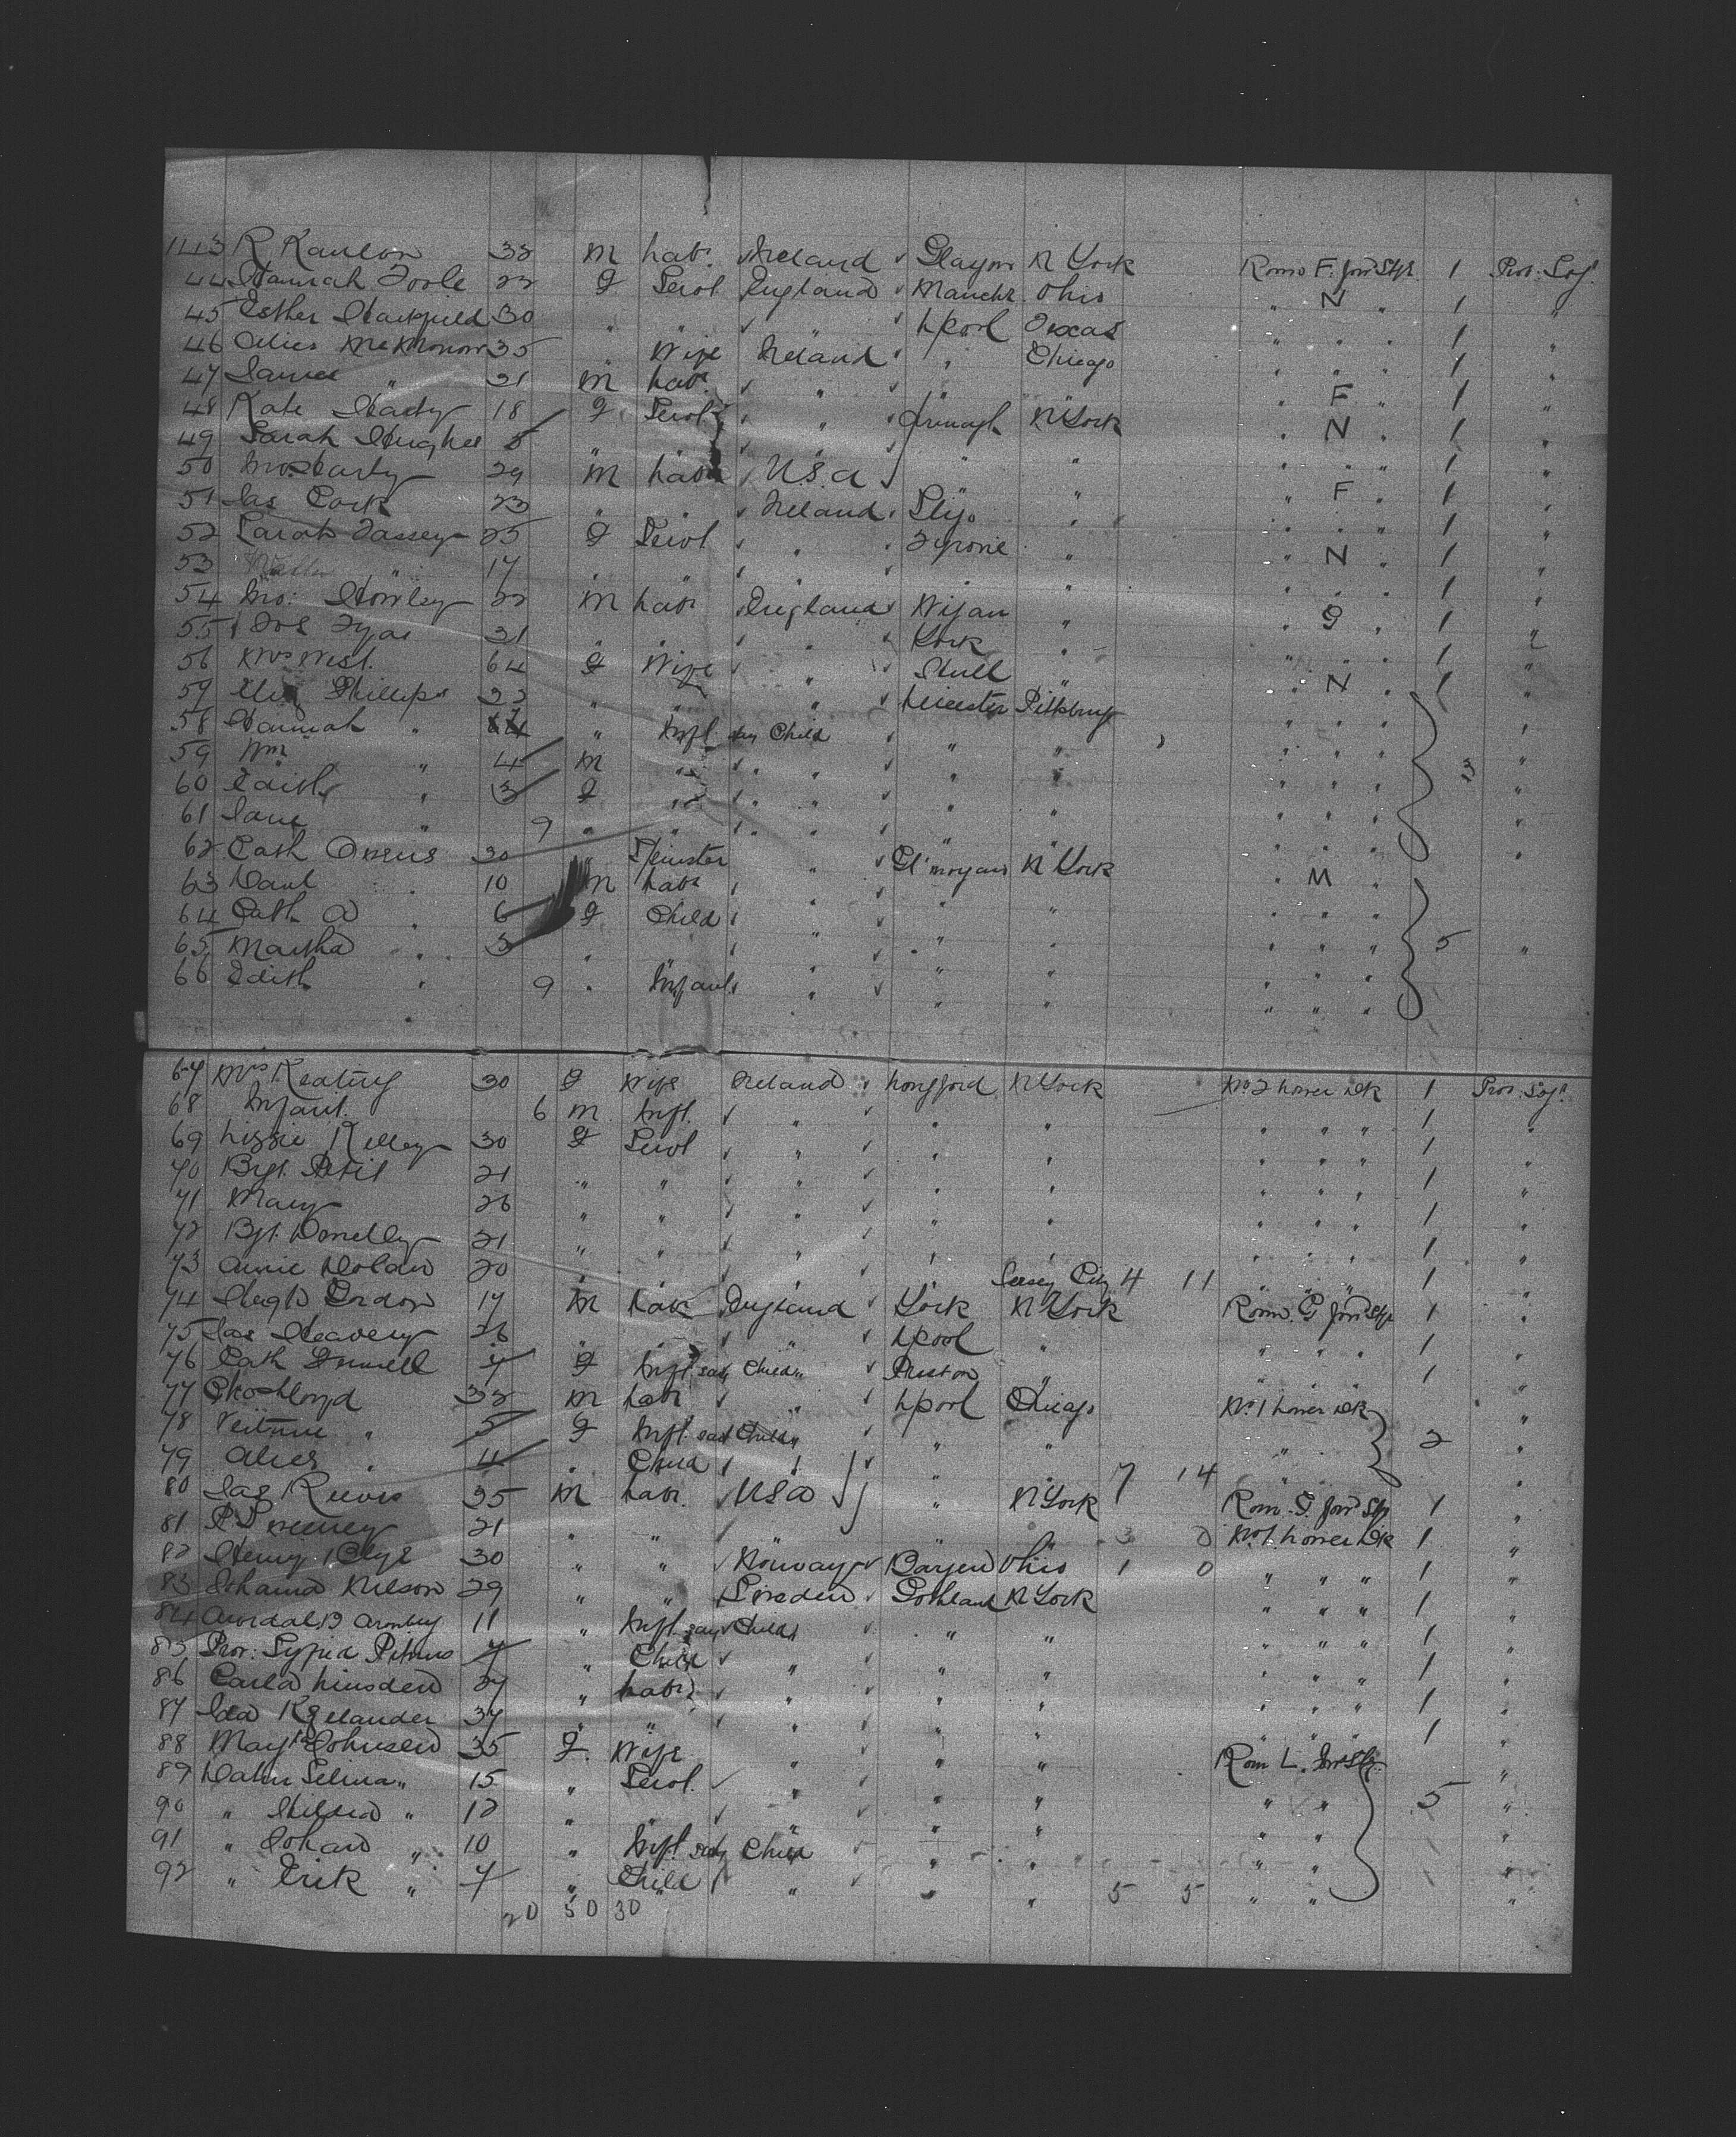 1143 R Kanlon 32 M Labr Ireland Glasgow N York Room F. for Stge 1 Pro: Sojn
44 Hannah Toole 22 F Servt England Manchr Ohio " N " 1 "
45 Esther 30 " " " Lpool Texas " " " 1 "
46 Alice McMorrow 35 " Wife Ireland " Chicago " " " 1 "
47 James " 21 M Labr " " " " F " 1 "
48 Kate Harty 18 F Servt " Armagh N York " N " 1 "
49 Sarah Hughes 5 " " " " " " " " 1 "
50 29 M Labr U.S.A " " " F " 1 "
51 Jas Cork 23 " " Ireland Sligo " " " " 1 "
52 Sarah Tassey 25 F Servt " Tyrone " " N " 1 "
53 " 17 " " " " " " " " 1 "
54 Jno: Howley 22 M Labr England Wigan " " G " 1 "
55 Jos Tyas 31 " " " York " " " " 1 "
56 Mrs West 64 F Wife " Hull " " N " 1 "
57 Eliz Phillips 22 " " " Leicester Pittsburg " " " "
58 Hannah " " Inft say Child " " " " " "
59 Wm " 4 M " " " " " " " 3 "
60 Edith " 3 F " " " " " " " "
61 Jane " 9 " " " " " " " " "
62 Cath Owens 30 " Spinster " Gl'morgan N York " M "
63 10 M Labr " " " " " "
64 Cath A " 6 F Child " " " " " " 5 "
65 Martha " 5 " " " " " " "
66 Edith " 9 " Infant " " " " " "
67 Mrs Keating 30 F Wife Ireland Longford N York No 2 Lower Dk 1 Pro: Sojn
68 Infant 6 M Inft. " " " " " " 1 "
69 Lizzie Kelley 30 F Servt " " " " " " 1 "
70 Bgt. 21 " " " " " " " " 1 "
71 Mary 26 " " " " " " " " 1 "
72 Bgt. Donnelly 21 " " " " " " " " 1 "
73 Annie Dolan 20 " " " " Jersey City 4 11 " " " 1 "
74 Hugh Gordon 17 M Labr England York N York Room G for Stge 1 "
75 Jas Heavery 26 " " " Lpool " " " " 1 "
76 Cath 7 F Inft say Child " Preston " " " " 1 "
77 Chas Lloyd 32 M Labr " Lpool Chicago No 1 Lower Dk "
78 " 5 F Inft say Child " " " " 2 "
79 Alice " 4 " Child " " " 7 14 "
80 Jas Reeves 35 M Labr USA " N York Room G. for Stge 1 "
81 P Sweeney 21 " " " " 3 0 No 1. Lower Dk 1 "
82 Henry 30 " " Norway Bargen Ohio 1 0 " " " 1 "
83 Johanna Nilson 29 " " Sweden Gothland N York " " " 1 "
84 11 " Inft say Child " " " " " 1 "
85 7 " Child " " " " " " 1 "
86 Carla Linsden 27 " Labr " " " " " " 1 "
87 Ida 37 " " " " " " " " 1 "
88 Johnsen 35 F. Wife " " " Room L. for Stge
89 Selma " 15 " Servt. " " " " " 5 "
90 " Hilda " 12 " " " " " " " "
91 " Johan " 10 " Inft say Child " " " " "
92 " Erik " 7 " Child " " " 5 5 " " "
20 50 30